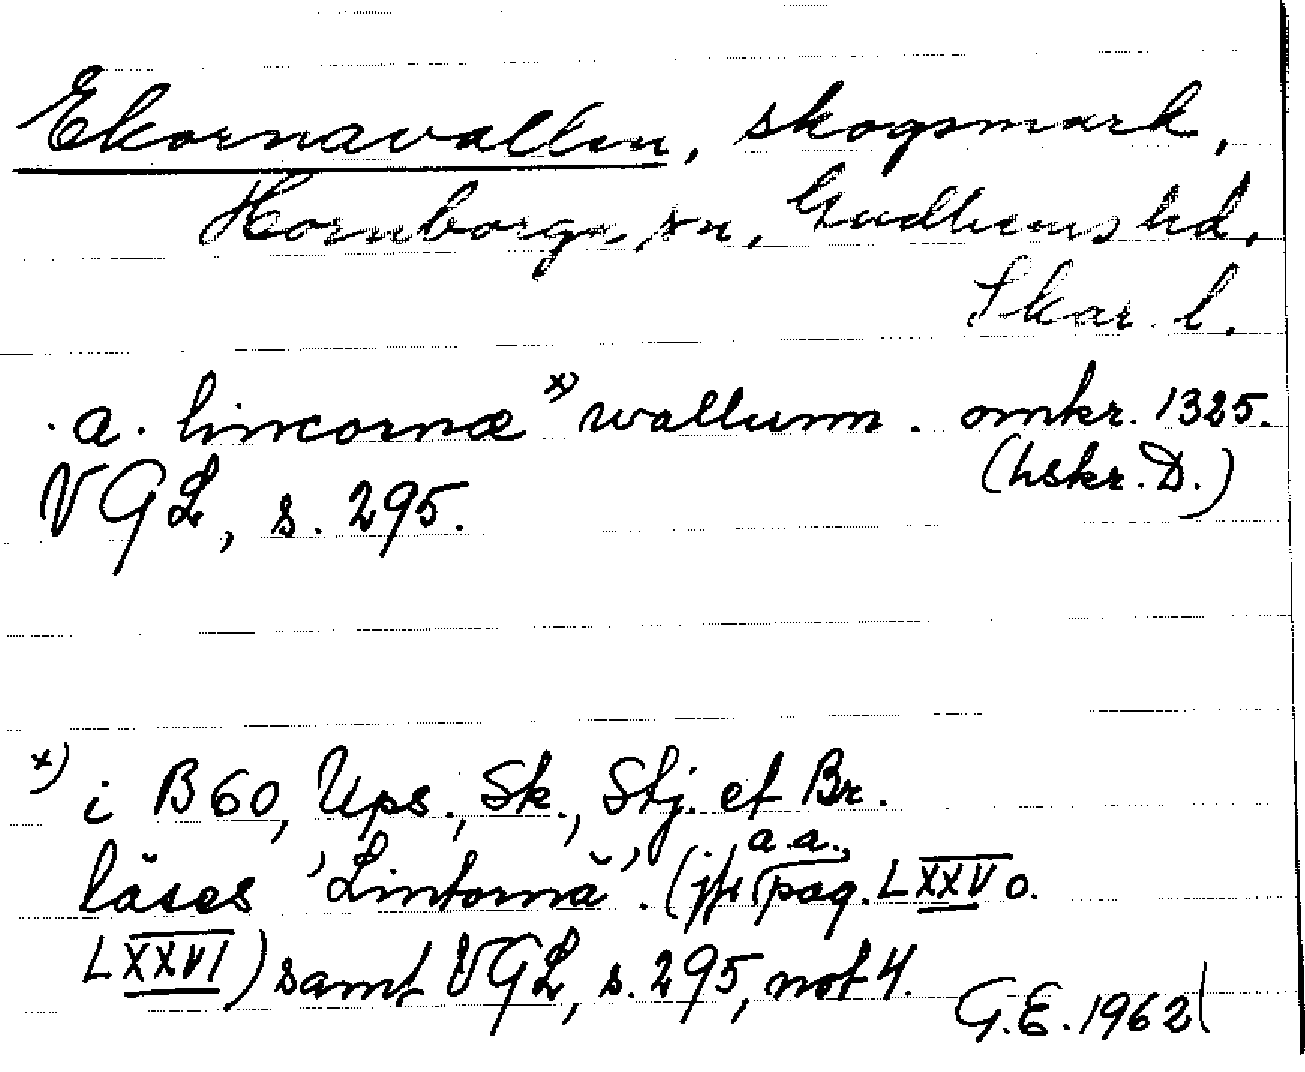 Ekornavallen, skogsmark,
Hornborga sn, Gudhems hd,
Skar. l.
. a . lincornæ x) wallum . omkr. 1325.
(hskr. D.)
VGL, s. 295.
x) i B 60, Ups., Sk., Stj. et Br.
läses 'Lintornä'. (jfr a.a., pag. LXXV o.
LXXVI) samt VGL, s. 295, not 4.
G.E. 1962